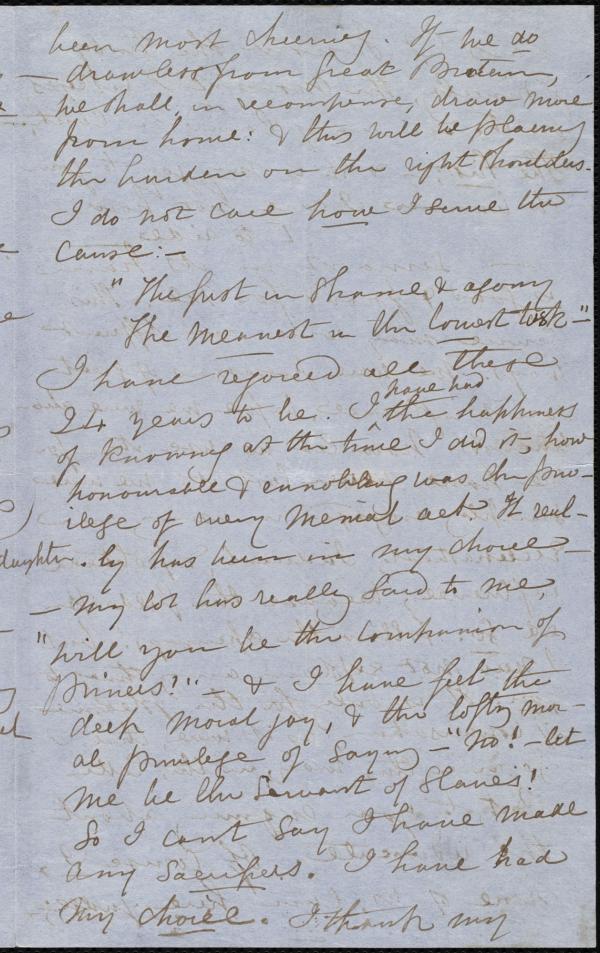 been most cheering. If we do
— draw less from Great Britain,
we shall, in recompense, draw more
from home: & this will be placing
the burden on the right shoulders.
I do not care how I serve the
cause:—
"The first in shame & agony
The meanest in the lowest task—"
I have rejoiced all these
24 years to be. I have had the happiness
of knowing at the time I did it, how
honourable & ennobling was the priv-
ilege of every menial act. It real-
daughter. ly has been in my choice —
— my lot has really said to me,
"will you be the companion of
Princes!" — & I have felt the
deep moral joy, & the lofty mor-
al privilege, of saying — "No! — let
me be the Servant of Slaves!
So I can't say I have made
any sacrifices. I have had
my choice. I thank my